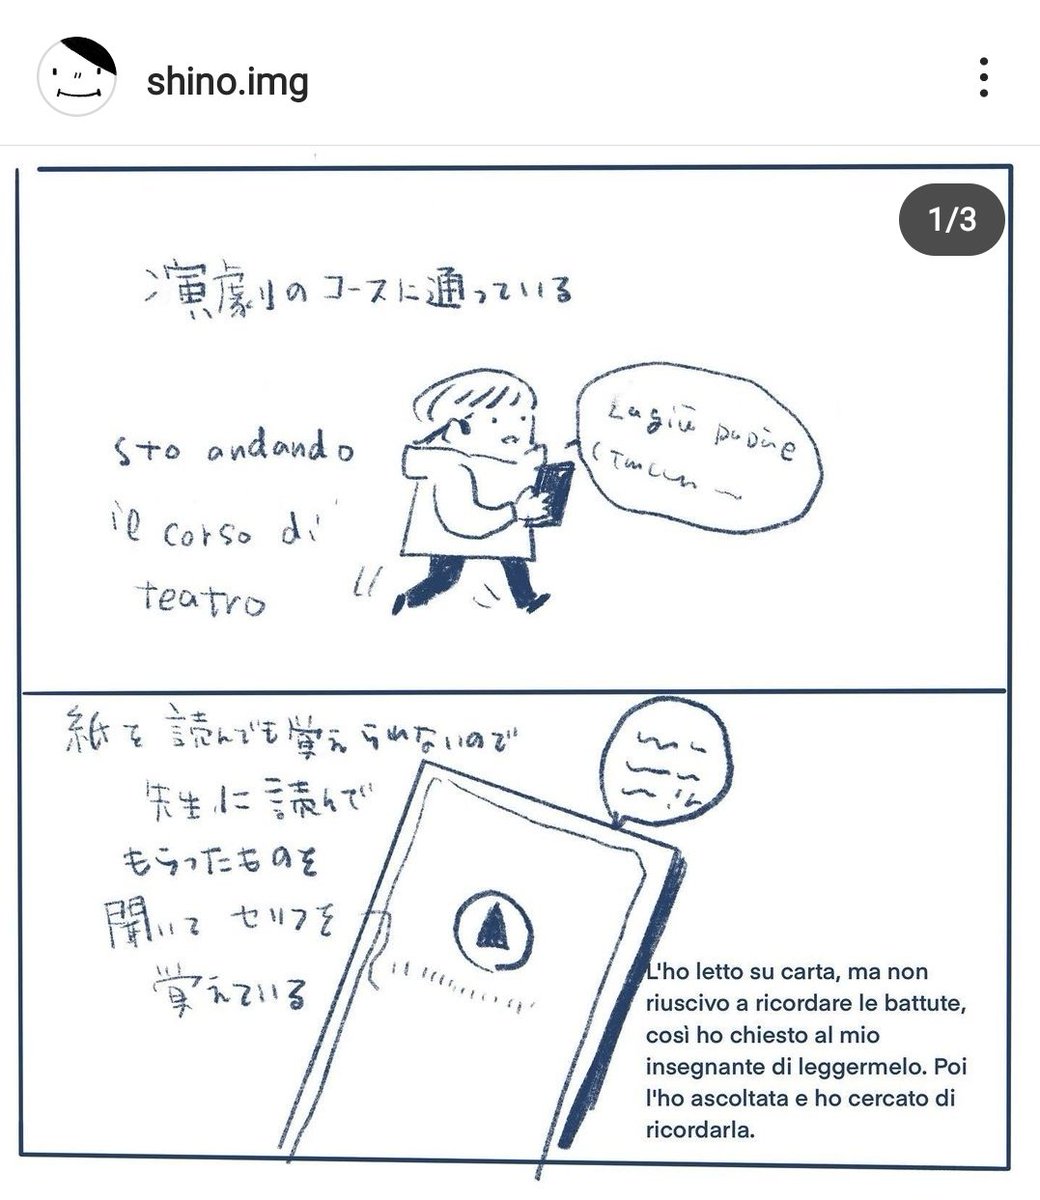 shino.img
1/3
演劇のコースに通っている
sto andando
il corso di
teatro
Lagiù
紙を読んでも覚えられないので
先生に読んで
もらったものを
聞いて セリフを
覚えている
L'ho letto su carta, ma non
riuscivo a ricordare le battute,
così ho chiesto al mio
insegnante di leggermelo. Poi
l'ho ascoltata e ho cercato di
ricordarla.